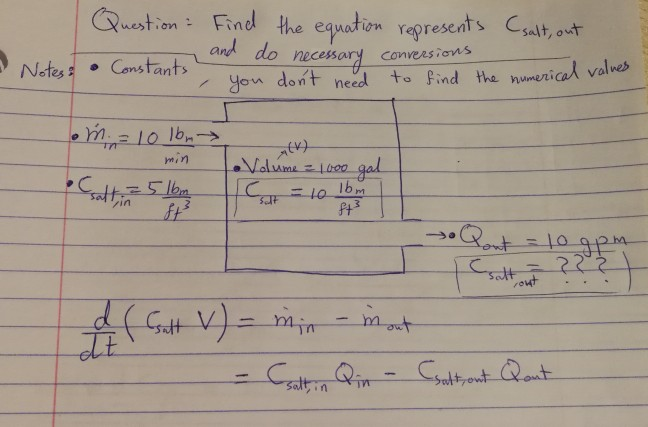 Question: Find the equation represents C_salt,out
and do necessary conversions
Notes: • Constants, you don't need to find the numerical values
• ṁ_in = 10 lbm/min →
• Volume (V) = 1000 gal
• C_salt,in = 5 lbm/ft³
C_salt = 10 lbm/ft³
→• Q_out = 10 gpm
C_salt,out = ???
d/dt (C_salt V) = ṁ_in - ṁ_out
= C_salt,in Q_in - C_salt,out Q_out